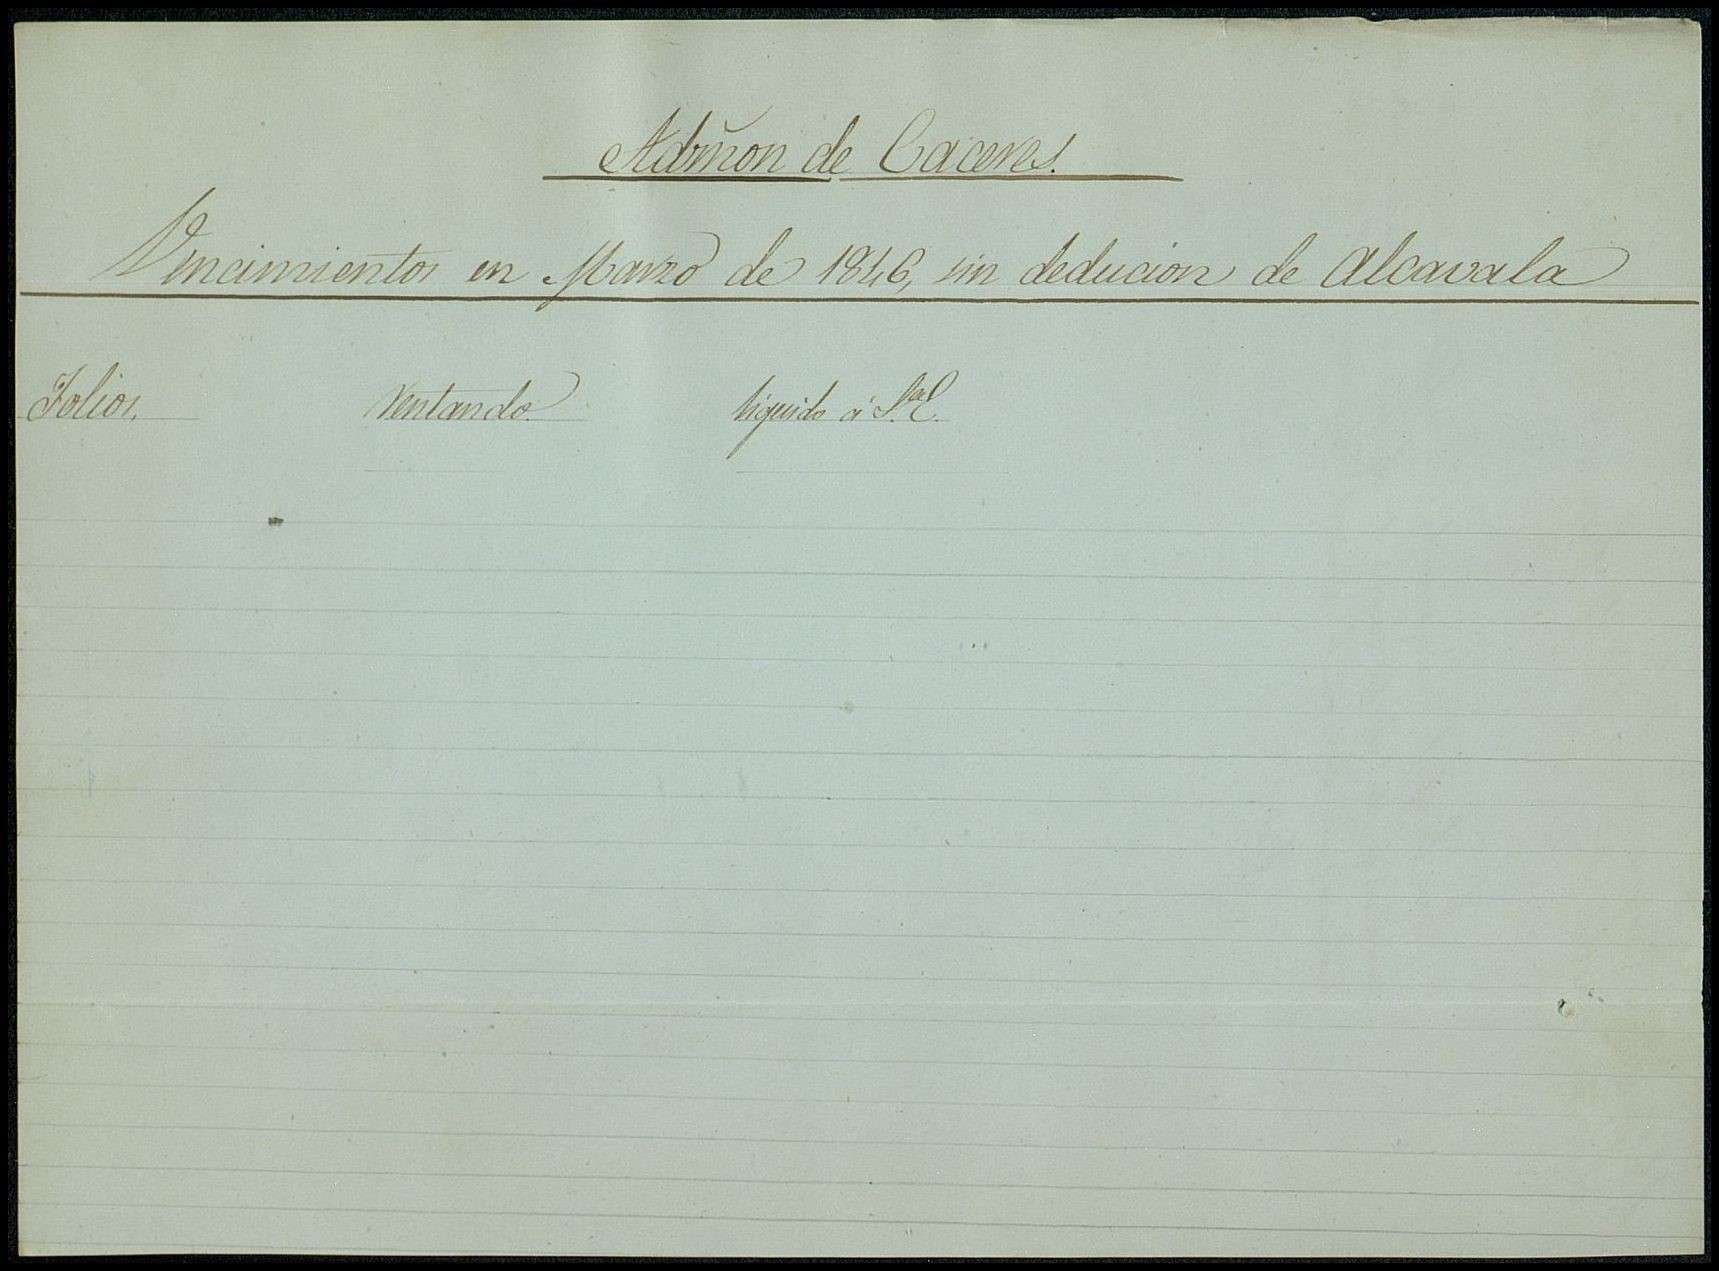 Admon de Caceres.
Vencimientos en Marzo de 1846, sin deducion de Alcavala
Folios. Ventando. liquido á S. E.